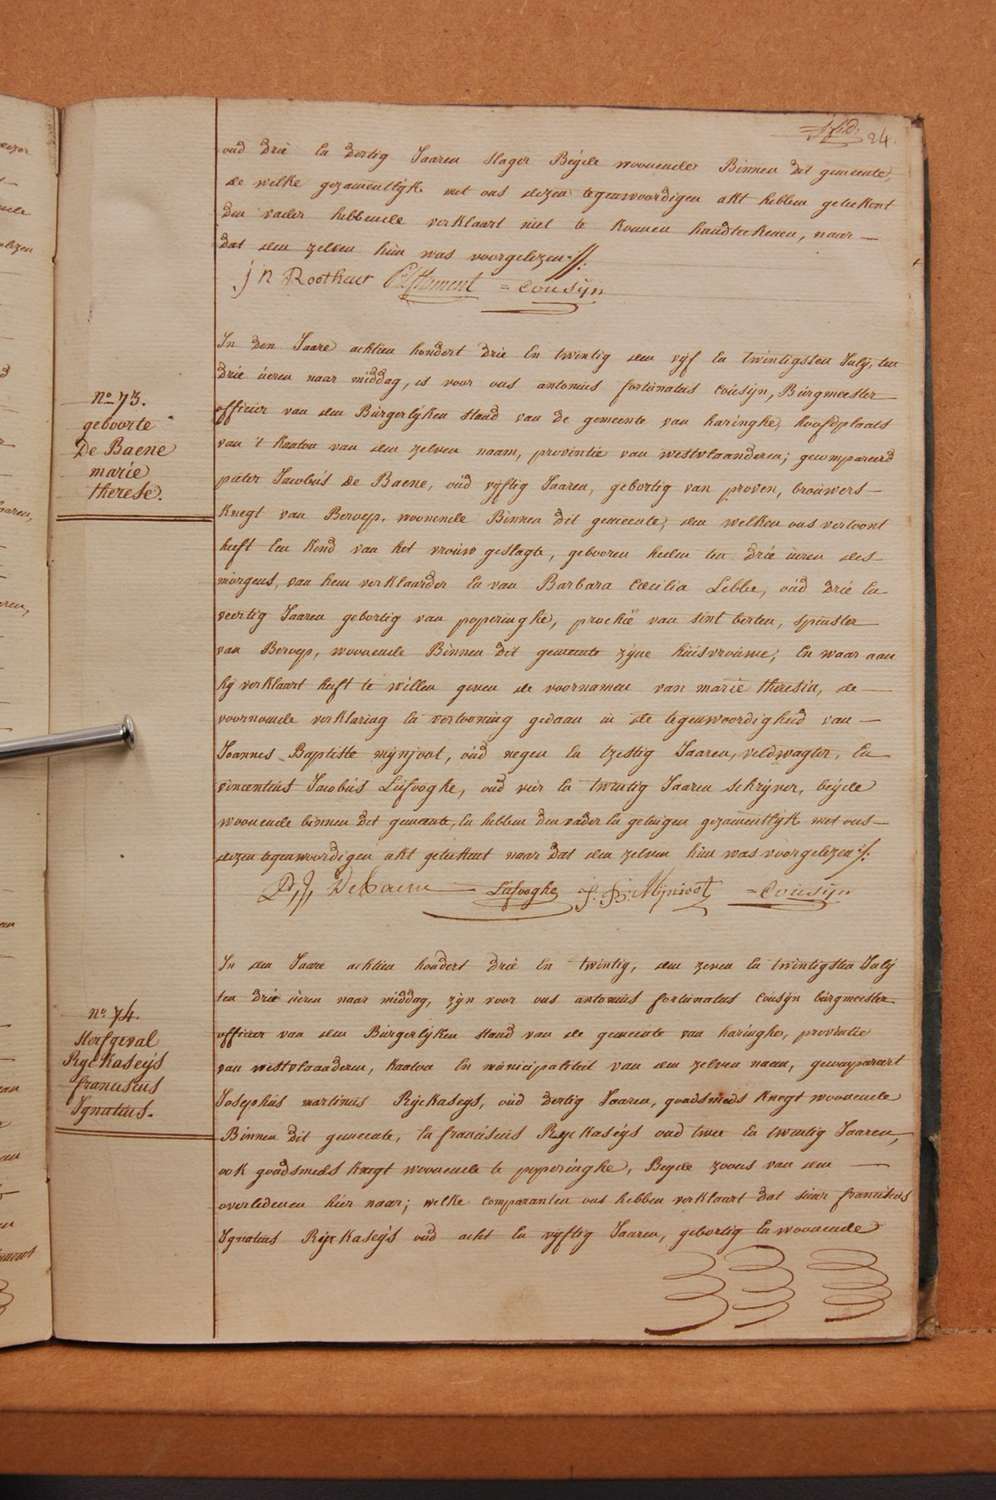 24.
oud drie En dertig Jaaren slager Beyde woonende Binnen dit gemeente,
de welke gezamentlyk met ons dezen tegenwoordigen akt hebben geteekent
den vader hebbende verklaart niet te konnen handteekenen, naer —
dat den zelven hun was voorgelezen //.
= Cousÿn
no 73.
geboorte
De Baene
marie
therese.
In den Jaare achtien hondert drie En twintig den vyf En twintigsten July, ten
drie ueren naar middag, is voor ons antonius fortunatus Cousÿn, Burgmeester
officier van den Burgerlyken staad van de gemeente van haringhe, hoofdplaats
van 't kanton van den zelven naam, provintie van westvlaanderen; gecompareerd
pieter Jacobus de Baene, oud vyftig Jaaren, gebortig van proven, brouwers —
knegt van Beroep, woonende Binnen dit gemeente, den welken ons vertoont
heeft Een kind van het vrouw geslagte, gebooren heden ten drie ueren des
morgens, van hem verklaarder En van Barbara Cœcilia Leble, oud drie En
veertig Jaaren gebortig van poperinghe, prochië van sint berten, spinster
van Beroep, woonende Binnen dit gemeente zyne huisvrouwe; En waar aan
hy verklaart heeft te willen geven de voornamen van marie theresia, de —
voornoemde verklaring En vertooning gedaan in de tegenwoordigheid van —
Joannes Baptiste mynjoot, oud negen En tzestig Jaaren, veldwagter, En
vincentius Jacobus Lafooghe, oud vier En twintig Jaaren schryver, beyde
woonende binnen dit gemeente, En hebben den vader En getuigen gezamentlyk met ons —
dezen tegenwoordigen akt geteekent naer dat den zelven hun was voorgelezen //.
P, J, De Baene Lafooghe J. B. Mynioot = Cousÿn
no 74.
sterfgeval
Ryckaseys
franciscus
Ignatius.
In den Jaare achtien hondert drie En twintig, den zeven En twintigsten July
ten drie ueren naar middag, zyn voor ons antonius fortunatus Cousÿn burgmeester
officier van den Burgerlyken staad van de gemeente van haringhe, provintie
van westvlaanderen, kanton En municipaliteit van den zelven naam, gecompareert
Josephus martinus Ryckaseys, oud dertig Jaaren, goudsmeds knegt woonende
Binnen dit gemeente, En franciscus Ryckaseys oud twee En twintig Jaaren,
ook goudsmeds knegt woonende te poperinghe, Beyde zoons van den —
overledenen hier naar; welke comparanten ons hebben verklaart dat sieur franciscus
Ignatius Ryckaseys oud acht En vyftig Jaaren, gebortig En woonende